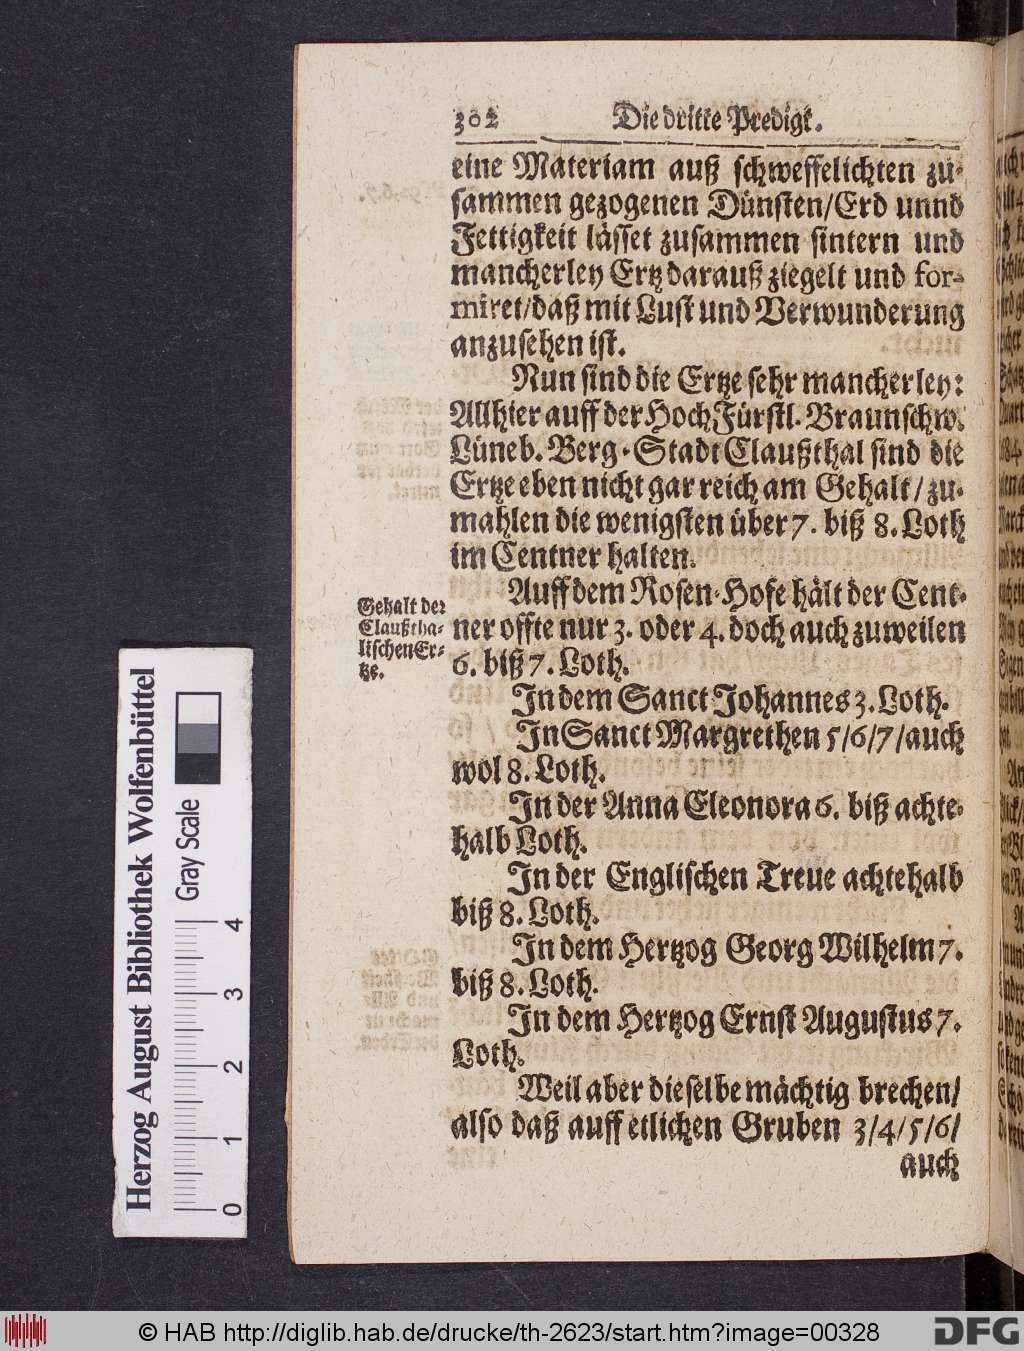 302 Die dritte Predigt.
eine Materiam auß schweffelichten zu-
sammen gezogenen Dünsten/Erd unnd
Fettigkeit lässet zusammen sintern und
mancherley Ertz darauß ziegelt und for-
miret/daß mit Lust und Verwunderung
anzusehen ist.
Nun sind die Ertze sehr mancherley:
Allhier auff der HochFürstl. Braunschw.
Lüneb. Berg-Stadt Claußthal sind die
Ertze eben nicht gar reich am Gehalt/zu-
mahlen die wenigsten über 7. biß 8. Loth
im Centner halten.
Gehalt der
Claußtha-
lischen Er-
tze.
Auff dem Rosen-Hofe hält der Cent-
ner offte nur 3. oder 4. doch auch zuweilen
6. biß 7. Loth.
In dem Sanct Johannes 3. Loth.
In Sanct Margrethen 5/6/7/auch
wol 8. Loth.
In der Anna Eleonora 6. biß achte-
halb Loth.
In der Englischen Treue achtehalb
biß 8. Loth.
In dem Hertzog Georg Wilhelm 7.
biß 8. Loth.
In dem Hertzog Ernst Augustus 7.
Loth.
Weil aber dieselbe mächtig brechen/
also daß auff etlichen Gruben 3/4/5/6/
auch
Herzog August Bibliothek Wolfenbüttel
Gray Scale
0 1 2 3 4
© HAB http://diglib.hab.de/drucke/th-2623/start.htm?image=00328
DFG